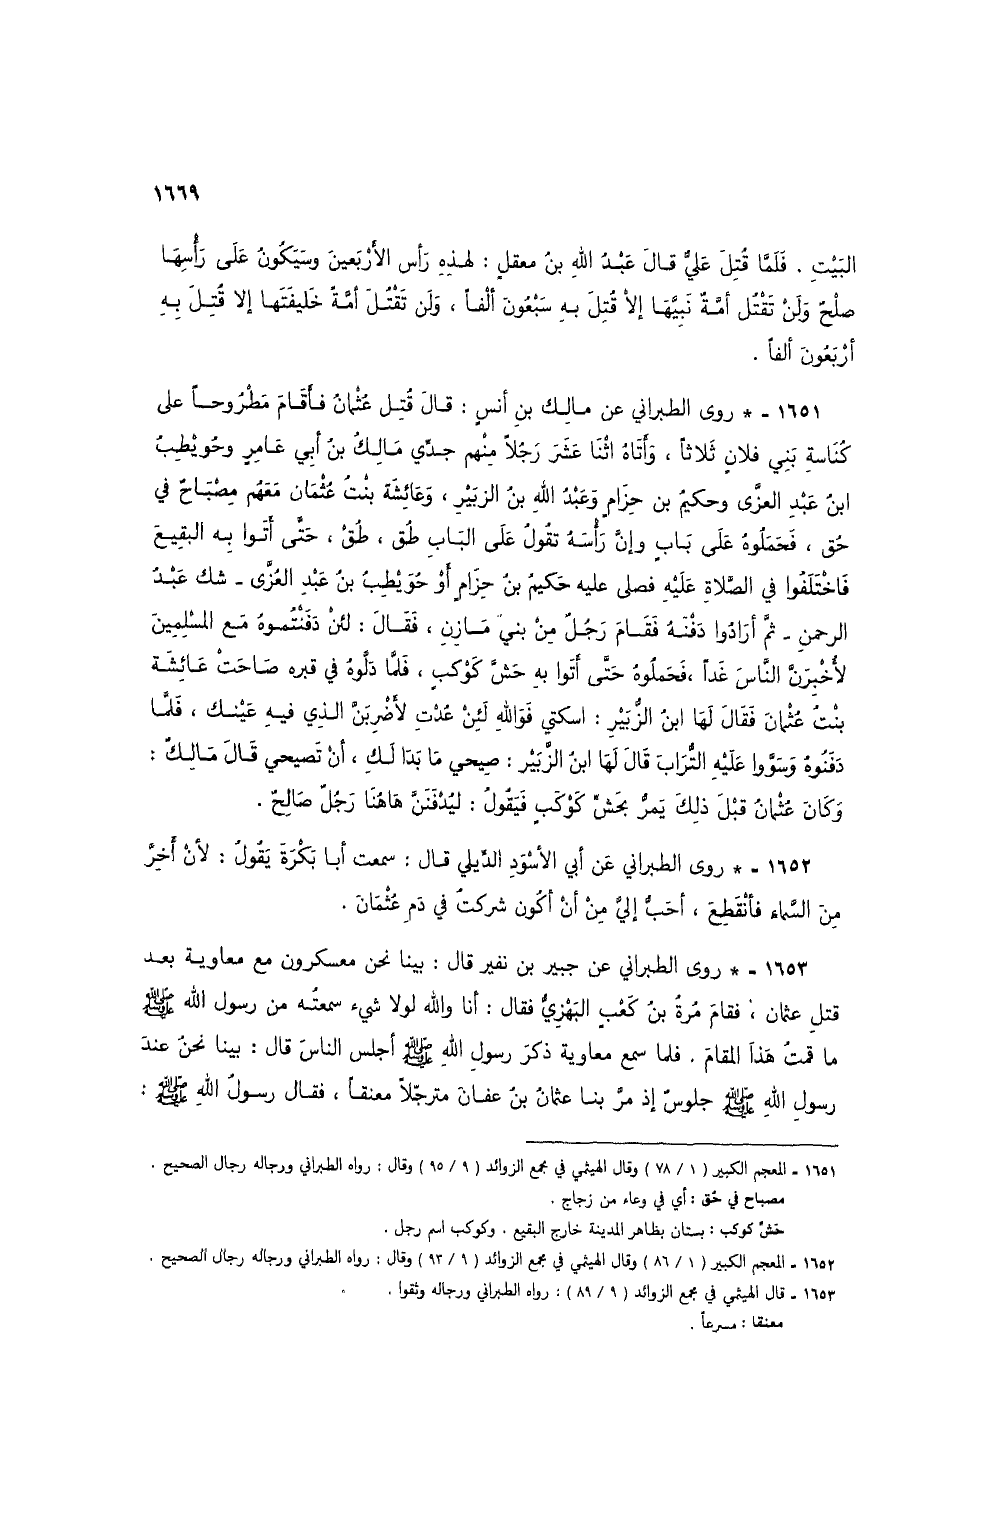 ١٦٦٩
البَيْتِ . فَلَمَّا قُتِلَ عَليٌّ قـالَ عَبْـدُ اللهِ بنُ معقلٍ : لهـذِهِ رَأس الأَرْبَعينَ وسَيَكُونُ عَلَى رَأْسِهَـا
صلْحٌ وَلَنْ تَقْتُل أمَّـةٌ نَبيَّهَـا إلاْ قُتِلَ بـهِ سَبْعُونَ ألْفـاً ، وَلَن تَقْتُـلَ أمَّـةٌ خَليفَتَهـا إلا قُتِـلَ بِـهِ
أرْبَعُونَ ألفاً .
١٦٥١ ـ * روى الطبراني عن مـالِـك بنِ أنسٍ : قـالَ قُتِـل عُثْمَانُ فـأَقَـامَ مَطْرُوحـاً على
كُنَاسةِ بَنِي فلانٍ ثَلاثاً ، وَأَتَاهُ اثْنَا عَشَرَ رَجُلاً مِنْهم جدّي مَـالِـكُ بنُ أبي عَـامرٍ وحُوَيْطِبُ
ابنُ عَبْدِ العزَّى وحكيمُ بن حِزَامٍ وَعَبْدُ اللهِ بنُ الزبَيْرِ ، وَعَائِشَة بنْتُ عُثْمَان مَعَهُم مِصْبَاحٌ في
حُق ، فَحَمَلُوهُ عَلَى بَـابٍ وإنَّ رَأْسَـهُ تقُولُ عَلَى البَـابِ طُق ، طُقْ ، حَتَّى أَتَـوا بِـه البقيـعَ
فَاخْتَلَفُوا في الصَّلاةِ عَلَيْهِ فصلى عليه حَكيمُ بنُ حِزَامٍ أَوْ حُوَيْطِبُ بنُ عَبْدِ العُزَّى ـ شك عَبْـدُ
الرحمنِ ـ ثمَّ أرَادُوا دَفْنَـهُ فَقَـامَ رَجُـلٌ مِنْ بنيَ مَـازِنٍ ، فَقَـالَ : لئنْ دَفَنْتُمـوهُ مَـع المُسْلِمِينَ
لأُخْبِرَنَّ النَّاسَ غَداً ،فَحَملُوهُ حَتَّى أَتَوا بهِ حَشَّ كَوْكبٍ ، فَلَمَّا دَلَّوهُ في قبره صَـاحَتْ عَـائِشَـة
بنْتُ عُثْمَانَ فَقَالَ لَهَا ابنُ الزُّبَيْرِ : اسكتي فَوَاللهِ لَئِنْ عُدْتِ لأَضْرِبَنَّ الـذِي فيـهِ عَيْنَـك ، فَلَمَّـا
دَفَنُوهُ وَسَوَّوا عَلَيْهِ التُّرَابَ قَالَ لَهَا ابنُ الزَّبَيْر : صِيحي مَا بَدَا لَـكِ ، أنْ تَصيحي قَـالَ مَـالِـكٌ :
وَكَانَ عُثْمانُ قبْلَ ذلِكَ يَمرُّ بحَشّ كَوْكَبٍ فَيَقُولُ : لَيُدْفَنَنَّ هَاهُنَا رَجُلٌ صَالِحٌ .
١٦٥٢ ـ * روى الطبراني عَن أبي الأسْوَدِ الدِّيلي قـال : سمعت أبـا بَكْرَةَ يَقُولُ : لأنْ أَخِرَّ
مِنَ السَّماءِ فأنْقَطِعَ ، أحَبُّ إليَّ مِنْ أنْ أكُون شركتُ في دَمِ عُثْمَانَ .
١٦٥٣ ـ * روى الطبراني عن جبير بن نفير قال : بينا نحن معسكرون مع معاويـة بعـد
قتلِ عثمان ، فقامَ مُرةُ بنُ كَعْبٍ البَهْزيُّ فقال : أنا والله لولا شيء سمعتُـه من رسولِ اللهِ ﷺ
ما قمتُ هَذَا المقامَ . فلما سمع معاوية ذكرَ رسولِ اللهِ ﷺ أجلس الناسَ قال : بينا نحنُ عندَ
رسولِ اللهِ ﷺ جلوسٌ إذ مرَّ بنـا عثمانُ بنُ عفـان مترجّلاً معنقـاً ، فقـال رسـولُ اللهِ ﷺ :
١٦٥١ ـ المعجم الكبير ( ١ / ٧٨ ) وقال الهيثمي في مجمع الزوائد ( ٩ / ٩٥ ) وقال : رواه الطبراني ورجاله رجال الصحيح .
مصباح في حُق : أي في وعاء من زجاج .
حَشّ كوكب : بستان بظاهر المدينة خارج البقيع . وكوكب اسم رجل .
١٦٥٢ ـ المعجم الكبير ( ١ / ٨٦ ) وقال الهيثمي في مجمع الزوائد ( ٩ / ٩٣ ) وقال : رواه الطبراني ورجاله رجال الصحيح .
١٦٥٣ ـ قال الهيثمي في مجمع الزوائد ( ٩ / ٨٩ ) : رواه الطبراني ورجاله وثقوا .
معنقا : مسرعاً .